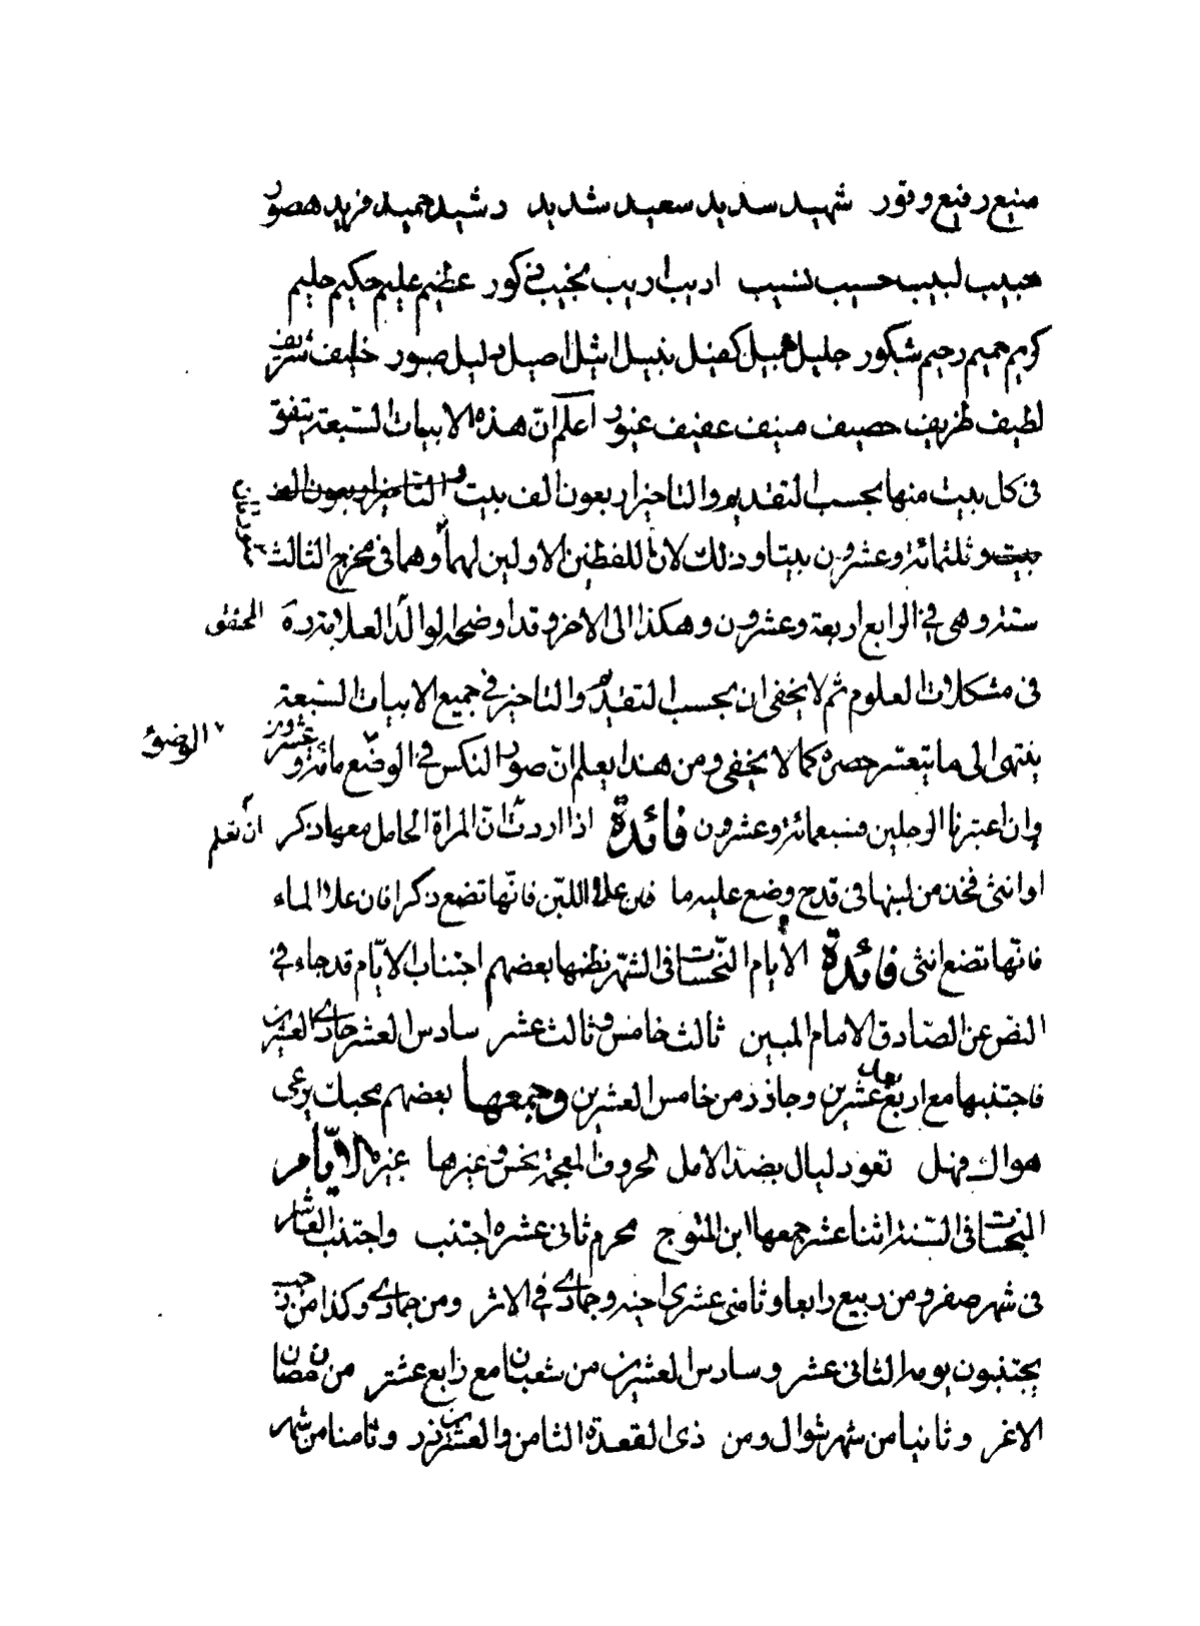 منيع رفيع وقور شهيد سديد سعيد شديد رشيد حميد فريد هصور
حبيب لبيب حسيب نسيب اديب اريب نجيب ذكور عظيم عليم حكيم حليم
كريم حميم رحيم شكور جليل جميل كفيل نبيل اثيل اصيل دليل صبور خليف شريف
لطيف ظريف حصيف منيف عفيف غيور اعلم انّ هذه الابيات السّبعة يتفق
فى كل بيت منها بحسب التقديم والتاخير اربعون الف بيت و التاخير اربعون الف
بيت وثلثمائة وعشرون بيتا وذلك لان اللفظين الاولين لهما وهما فى مخرج الثالث
صورتان
ستة وهى فى الرابع اربعة وعشرون وهكذا الى الاخر وقد اوضحه الوالد العلامة ره المحقق
فى مشكلات العلوم ثم لا يخفى ان بحسب التقديم والتاخير فى جميع الابيات السّبعة
ينتهى الى ما يتعسّر حصره كما لا يخفى ومن هذا يعلم انّ صور النكس فى الوضّع مائة وعشرون
الوضوء
وان اعتبرنا الرجلين فسبعمائة وعشرون فائدة اذا اردت انّ المراة الحامل معها ذكر ان تعلم
او انثى فخذ من لبنها فى قدح وضع عليه ما فان علا اللبن فانّها تضع ذكرا فان علا الماء
فانّها تضع انثى فائدة الايام النّحسات فى الشهر نظمها بعضهم اجتناب الايّام قد جاء فى
النصّ عن الصّادق الامام المبين ثالث خامس وثالث عشر سادس العشر حادى العشرين
فاجتنبها مع اربع عشرين وحاذر من خامس العشرين وجمعها بعضهم محبك يرعى
هواك فهل تعود ليال بضد الامل الحروف المعجمة نحس وغيرها غيره الايّام
النحسات فى السّنة اثنا عشر جمعها ابن المتوج محرم ثانى عشره اجتنب واجتنب العاشر
فى شهر صفر ومن ربيع رابعا وثامنى عشرى اخيه وجمادى فى الاثر ومن جمادى وكذا من رجب
يجتنبون يومه الثانى عشر وسادس العشرين من شعبان مع رابع عشر من رمضان
الاغر وثانيا من شهر شوال ومن ذى القعدة الثامن والعشرين وثامنا من شهر